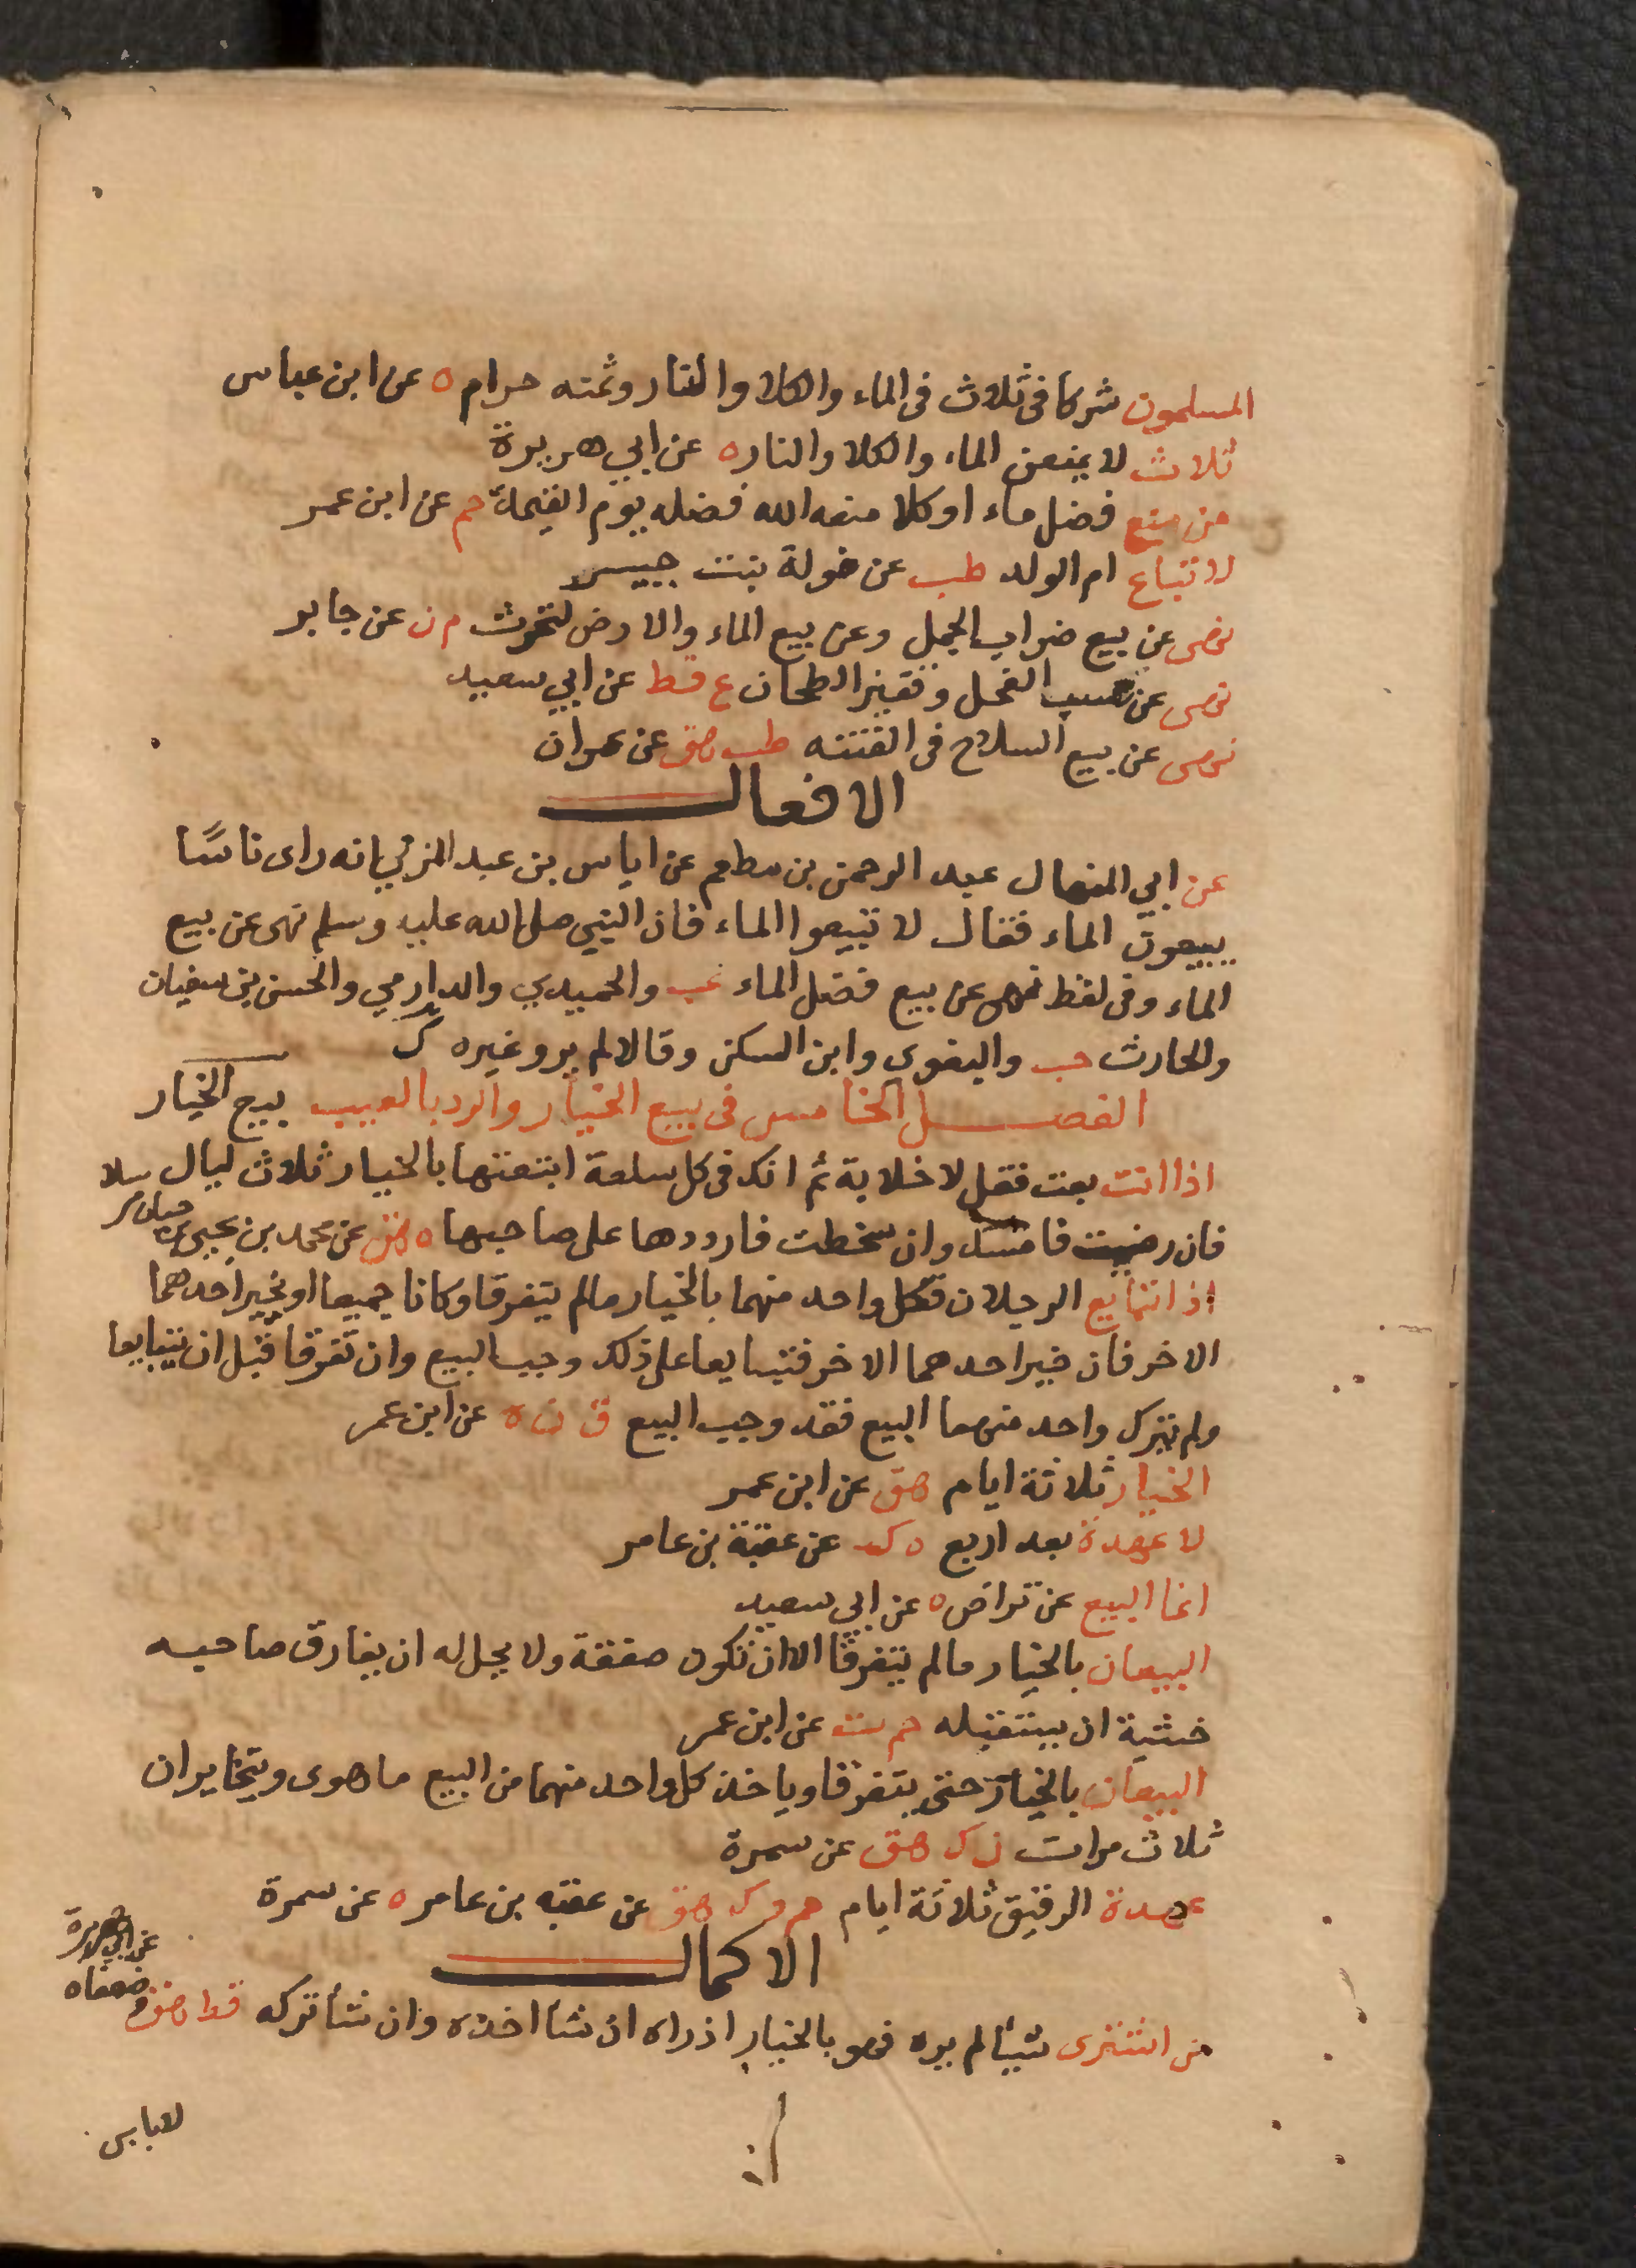 المسلمون شركا فى ثلاث فى الماء والكلا والنار وثمنه حرام ه عن ابن عباس
ثلاث لا يمنعن الماء والكلا والنار ه عن ابي هريرة
من منع فضل ماء او كلا منعه الله فضله يوم القيمة حم عن ابن عمر
لا تباع ام الولد طب عن خولة بنت
نهى عن بيع ضراب الجمل وعن بيع الماء والارض لتحرث م ن عن جابر
نهى عن عسب الفحل وقفيز الطحان ع قط عن ابي سعيد
نهى عن بيع السلاح فى الفتنه طب هق عن عمران
الافعال
عن ابي المنهال عبد الرحمن بن مطعم عن اياس بن عبد المزني انه راى ناسًا
يبيعون الماء فقال لا تبيعوا الماء فان النبي صلى الله عليه وسلم نهى عن بيع
الماء وفى لفظ نهى عن بيع فضل الماء عب والحميدي والدارمي والحسن بن سفيان
والحارث حب والبغوى وابن السكن وقالا لم يرو غيره ك
الفصل الخامس فى بيع الخيار والرد بالعيب بيع الخيار
اذا انت بعت فقل لا خلابة ثم انك فى كل سلعة ابتعتها بالخيار ثلاث ليال
فان رضيت فامسك وان سخطت فارددها على صاحبها ه هق عن محمد بن يحيى بن حبان مرسلا
اذا تبايع الرجلان فكل واحد منهما بالخيار مالم يتفرقا وكانا جميعا او يخير احدهما
الاخر فان خير احدهما الاخر فتبايعا على ذلك وجب البيع وان تفرقا قبل ان يتبايعا
ولم يترك واحد منهما البيع فقد وجب البيع ق ن ه عن ابن عمر
الخيار ثلاثة ايام هق عن ابن عمر
لا عهدة بعد اربع ه ك عن عقبة بن عامر
انما البيع عن تراض ه عن ابي سعيد
البيعان بالخيار مالم يتفرقا الا ان تكون صفقة ولا يحل له ان يفارق صاحبه
خشية ان يستقيله حم ت عن ابن عمر
البيعان بالخيار حتى يتفرقا وياخذ كل واحد منهما من البيع ما هوى ويتخايران
ثلاث مرات ن ك هق عن سمرة
عهدة الرقيق ثلاثة ايام حم د ك هق عن عقبه بن عامر ه عن سمرة
الاكمال
من اشترى شيألم يره فهو بالخيار اذ راه ان شأ اخذه وان شأ تركه قط هق وضعفاه
عن ابي هريرة
لاباس